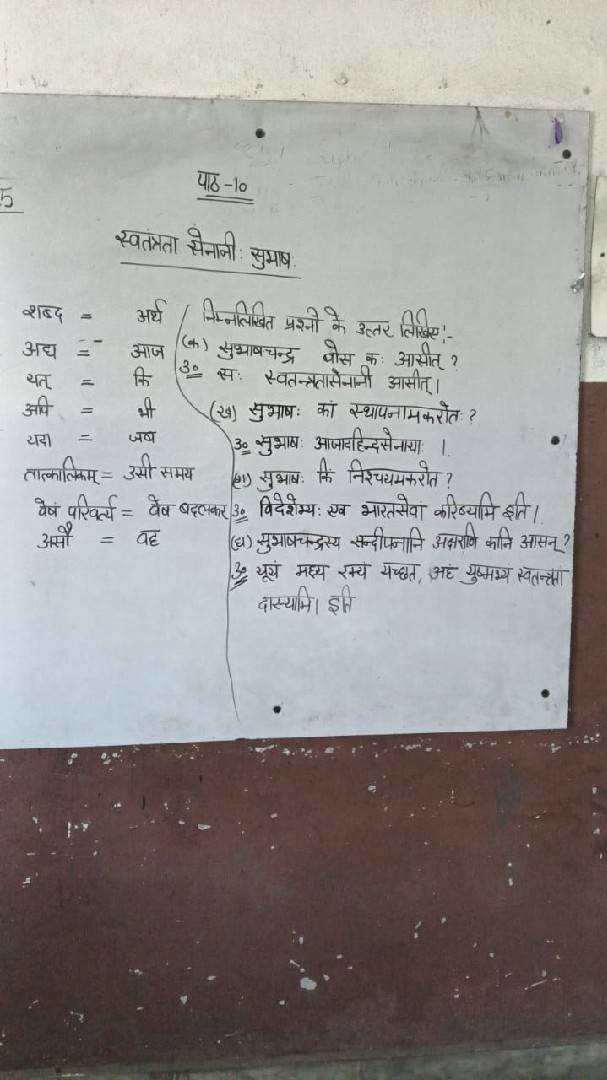 पाठ -१०
स्वतंत्रता सेनानी: सुभाष:
शब्द = अर्थ
अद्य = आज
यत् = कि
अपि = भी
यदा = जब
तात्कालिकम् = उसी समय
वेषं परिवर्त्य = वेष बदलकर
असौ = वह
निम्नलिखित प्रश्नों के उत्तर लिखिए:-
(क) सुभाषचन्द्र बोस क: आसीत् ?
उ० स: स्वतन्त्रतासेनानी आसीत्।
(ख) सुभाष: कां स्थापनामकरोत: ?
उ० सुभाष: आजादहिन्दसेनाया: ।
(ग) सुभाष: किं निश्चयमकरोत ?
उ० विदेशेभ्य: एव भारतसेवा करिष्यामि इति।
(घ) सुभाषचन्द्रस्य सन्दीपनानि अक्षराणि कानि आसन् ?
उ० यूयं मह्य रक्तं यच्छत, अहं युष्मभ्य स्वतन्त्रतां
दास्यामि। इति